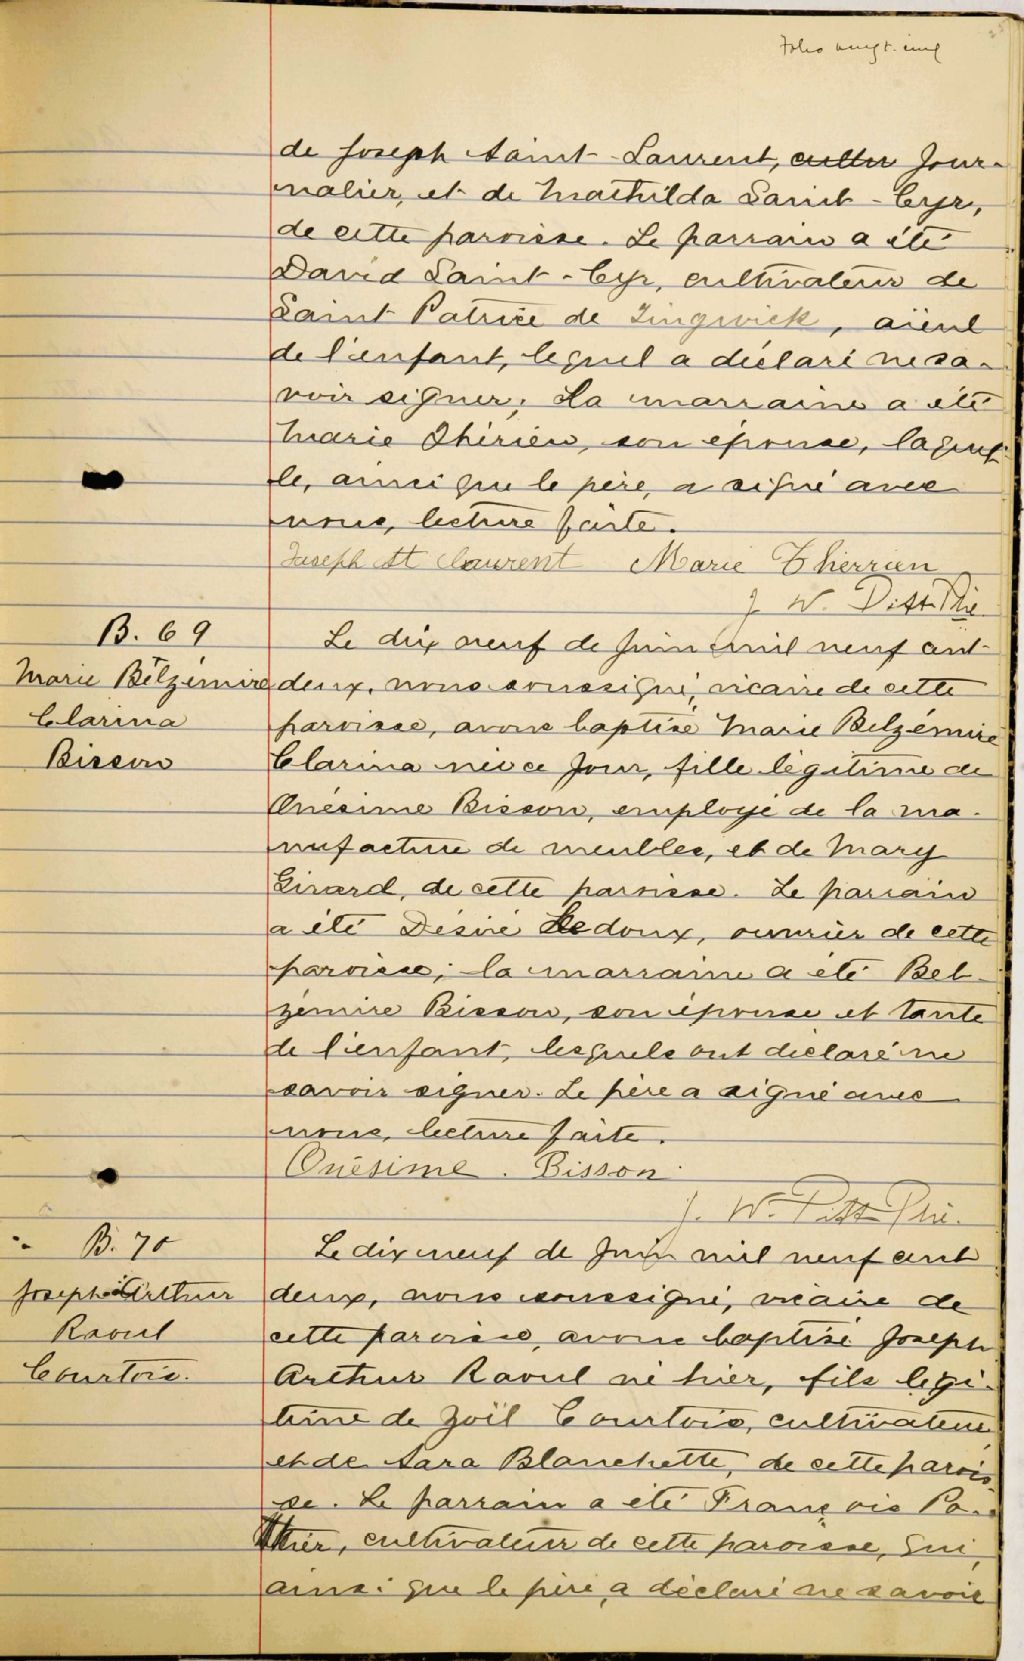 Folio vingt-cinq
25
de Joseph Saint-Laurent, cultiv jour-
nalier, et de Mathilda Saint-Cyr,
de cette paroisse. Le parrain a été
David Saint-Cyr, cultivateur de
Saint Patrice de Tingwick, aïeul
de l'enfant, lequel a déclaré ne sa-
voir signer; La marraine a été
Marie Thérien, son épouse, laquel-
le, ainsi que le père, a signé avec
nous, lecture faite.
Joseph St Laurent Marie Therrien
J. W.
B. 69
Marie Belzémire
Clarina
Bisson
Le dix neuf de Juin mil neuf cent-
deux, nous soussigné, vicaire de cette
paroisse, avons baptisé Marie Belzémire
Clarina née ce jour, fille légitime de
Onésime Bisson, employé de la ma-
nufacture de meubles, et de Mary
Girard, de cette paroisse. Le parrain
a été Désiré Ledoux, ouvrier de cette
paroisse; la marraine a été Bel-
zémire Bisson, son épouse et tante
de l'enfant, lesquels ont déclaré ne
savoir signer. Le père a signé avec
nous, lecture faite.
Onésime. Bisson.
J. W.
B. 70
Joseph Arthur
Raoul
Courtois.
Le dix neuf de Juin mil neuf cent
deux, nous soussigné, vicaire de
cette paroisse, avons baptisé Joseph
Arthur Raoul né hier, fils légi-
time de Zoïl Courtois, cultivateur,
et de Sara Blanchette, de cette parois-
se. Le parrain a été François Po-
thier, cultivateur de cette paroisse, qui,
ainsi que le père, a déclaré ne savoir